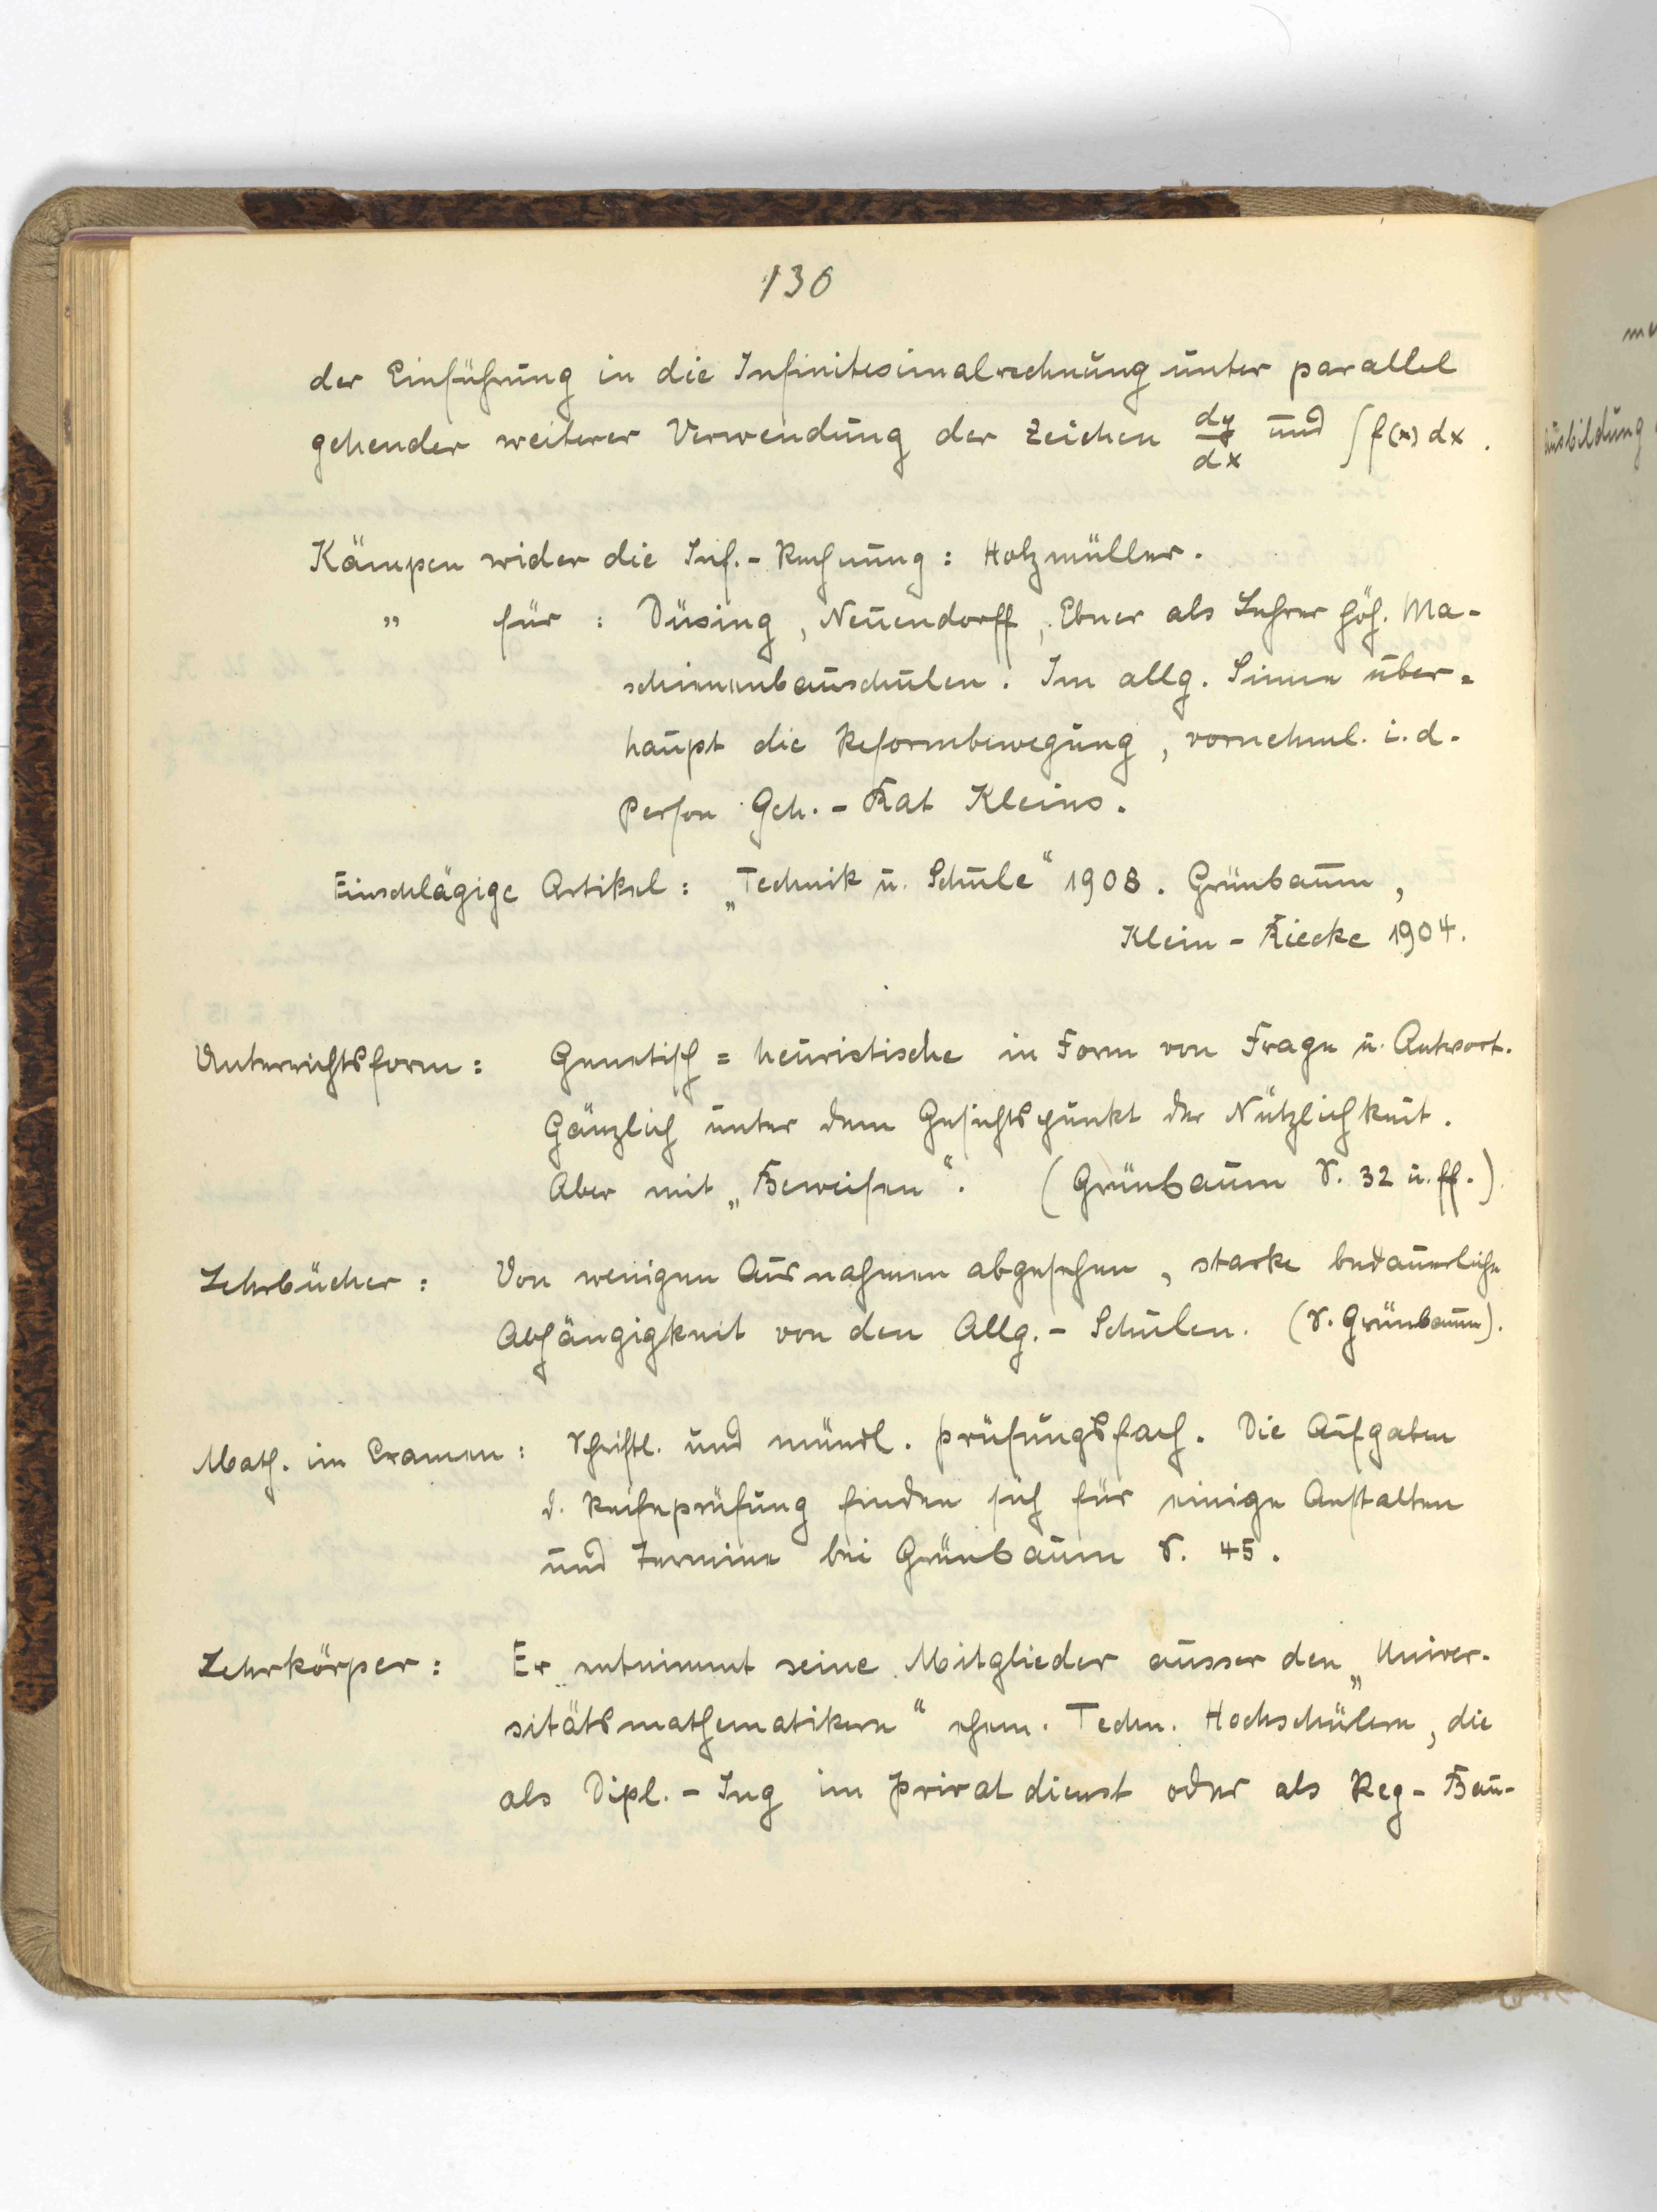 130
der Einführung in die Infinitesimalrechnung unter parallel
gehender weiterer Verwendung der Zeichen dy/dx und ∫ f(x) dx .
Kämpen wider die Inf.-Rechnung : Holzmüller.
" für : Düsing, Neuendorff, Ebner als Lehrer höh. Ma-
schinenbauschulen. Im allg. Sinne über=
haupt die Reformbewegung, vornehml. i. d.
Person Geh.-Rat Kleins.
Einschlägige Artikel : „Technik u. Schule“ 1908. Grünbaum,
Klein - Riecke 1904.
Unterrichtsform : Genetisch = heuristische in Form von Frage u. Antwort.
Gänzlich unter dem Gesichtspunkt der Nützlichkeit.
Aber mit „Beweisen“. (Grünbaum S. 32 u. ff.)
Lehrbücher : Von wenigen Ausnahmen abgesehen, starke bedauerliche
Abhängigkeit von den Allg.-Schulen. (S. Grünbaum).
Math. im Examen : Schriftl. und mündl. Prüfungsfach. Die Aufgaben
d. Reifeprüfung finden sich für einige Anstalten
und Termine bei Grünbaum S. 45.
Lehrkörper : Er entnimmt seine Mitglieder ausser den „Univer-
sitätsmathematikern“ ehem. Techn. Hochschülern, die
als Dipl.-Ing im Privatdienst oder als Reg-Bau-
Ausbildung